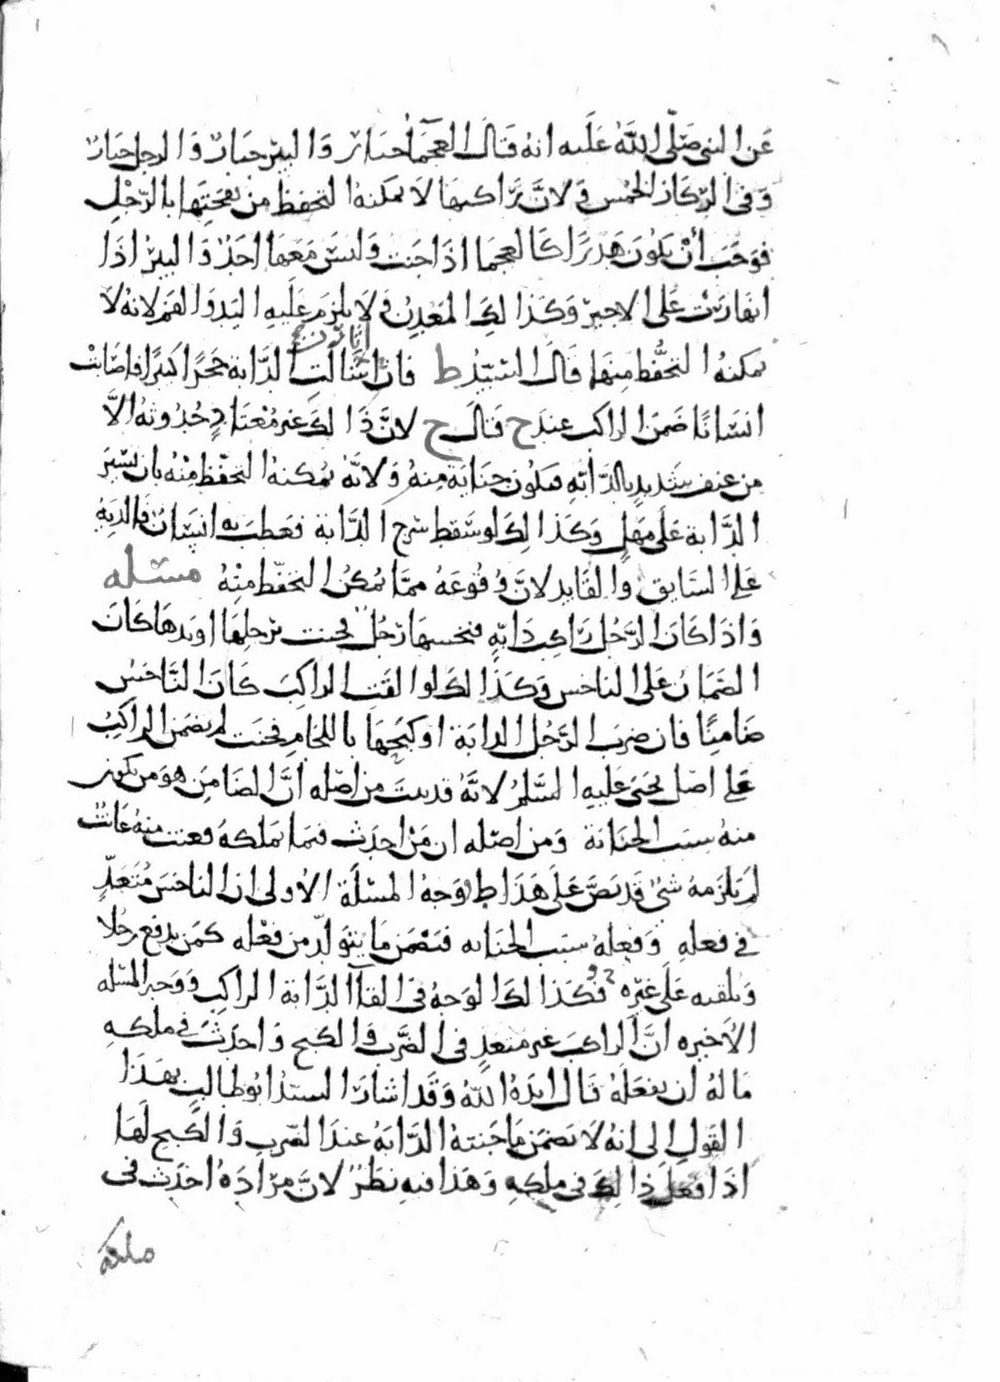 عَن النبي صَلّى اللهُ عَلَيه انه قَالَ العجمَآ جُبَار وَالبير جبَار وَالرجل جبَار
وَفي الرِّكاز الخُمس وَلانَّ رَاكبهَا لاَ يمكنهُ التحفظ من نفحَتِهَا بالرّجْلِ
فوَجَبَ أنْ يَكُونَ هَدَرًا كَالعجمَا اذَا جنَت وَليسَ مَعَهَا احَدٌ وَالبيرُ اذَا
انهَارَتْ عَلى الاجيرِ وَكَذَا لكَ المَعْدِن وَلاَ يلزم عَلَيهِ اليَد وَالفَم لانهُ لاَ
يمكنهُ التحفُّظ منهَا قَالَ السَّيِّد ط فان اثَارَت الدَّابة حجرًا كبيرًا فاصَابَت
انسَانًا ضَمِنَ الراكب عند ح قالَ ح لانَّ ذَا لكَ غير مُعْتَادٍ حُدُوثهُ الاَّ
من عنف شَدِيدٍ بالدَّابّهِ فيَكُون جنَايَة منهُ وَلانَّهُ يُمكنهُ التحفّظ مِنْهُ بان يسَيّرَ
الدَّابة عَلَى مَهَلٍ وَكَذَا لكَ لو سَقَط سَرج الدَّابة فعَطِبَ به انسَان فالديَة
عَلى السَّايق وَالقَايد لانَّ وُقُوعَهُ ممَّا يُمْكنُ التحَفّظ مِنْهُ مسئله
وَاذَا كَانَ الرَّجُل رَاكِبَ دَابّهٍ فنخَسهَا رَجُل فجنت برجلِهَا اويَدهَا كَانَ
الضَّمَانُ عَلى الناخس وَكَذَا لكَ لو القَت الراكِبَ كَانَ النَّاخسُ
ضَامِنًا فان ضرَبَ الرَّجُل الدابَة او كَبَحَهَا باللجَامِ فجنَت لم يضمَن الراكبُ
عَلى اصْل يحيَى عَليهِ السَّلمُ لانَّهُ قد ثبتَ من اصْله انَّ الضَامِنَ هوَ مَن يكون
منهُ سبَبُ الجنَايَة وَمن اصْله ان مَنْ احدَث فيمَا يَملكهُ فعنتَ منهُ عَانت
لَم يَلزَمهُ شىٌ قد نصَّ عَلَى هَذَا ط وَجهُ المسْئلَة الاُولى ان الناخسَ مُتَعَدٍّ
في فعلهِ وَفعِلهُ سبَب الجنَايه فيَضْمَن مَا يتَوَلّدُ من فعْله كَمَن يدفع رَجُلا
وَيلقيه عَلَى غيرِه وَكَذَا لكَ الوَجهُ في القآ الدَّابة الراكِب وَوَجه المسْئله
الاَخيره انَّ الراكبَ غير متعدٍ في الضَّربِ وَالكبح وَاحدَثَ في ملكهِ
مَا لهُ ان يفعَلهُ قَالَ ايّدَهُ اللهُ وَقَد اشَارَ السَّيّدُ ابُو طَالبٍ بهَذَا
القَولِ الى انهُ لا يَضمَن مَا جَنتهُ الدَّابةُ عندَ الضّربِ وَالكَبح لَهَا
اذَا فَعَلَ ذَا لِكَ في ملكهِ وَهَذَا فيهِ نظَرٌ لانَّ مرَادَهُ احدَث في
ملكه